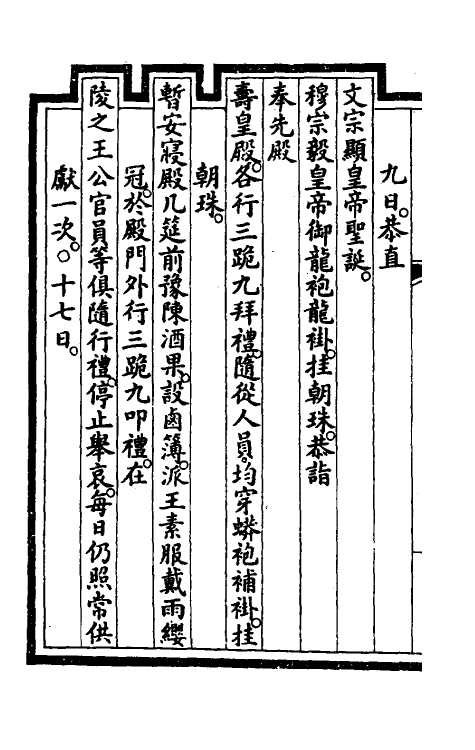 九日。恭直
文宗顯皇帝聖誕。
穆宗毅皇帝御龍袍龍褂。挂朝珠。恭詣
奉先殿
壽皇殿。各行三跪九拜禮。隨從人員。均穿蟒袍補褂。挂
朝珠。
暫安寢殿几筵前。豫陳酒果。設鹵簿。派王素服戴雨纓
冠。於殿門外行三跪九叩禮。在
陵之王公官員等俱隨行禮。停止舉哀。每日仍照常供
獻一次。○十七日。